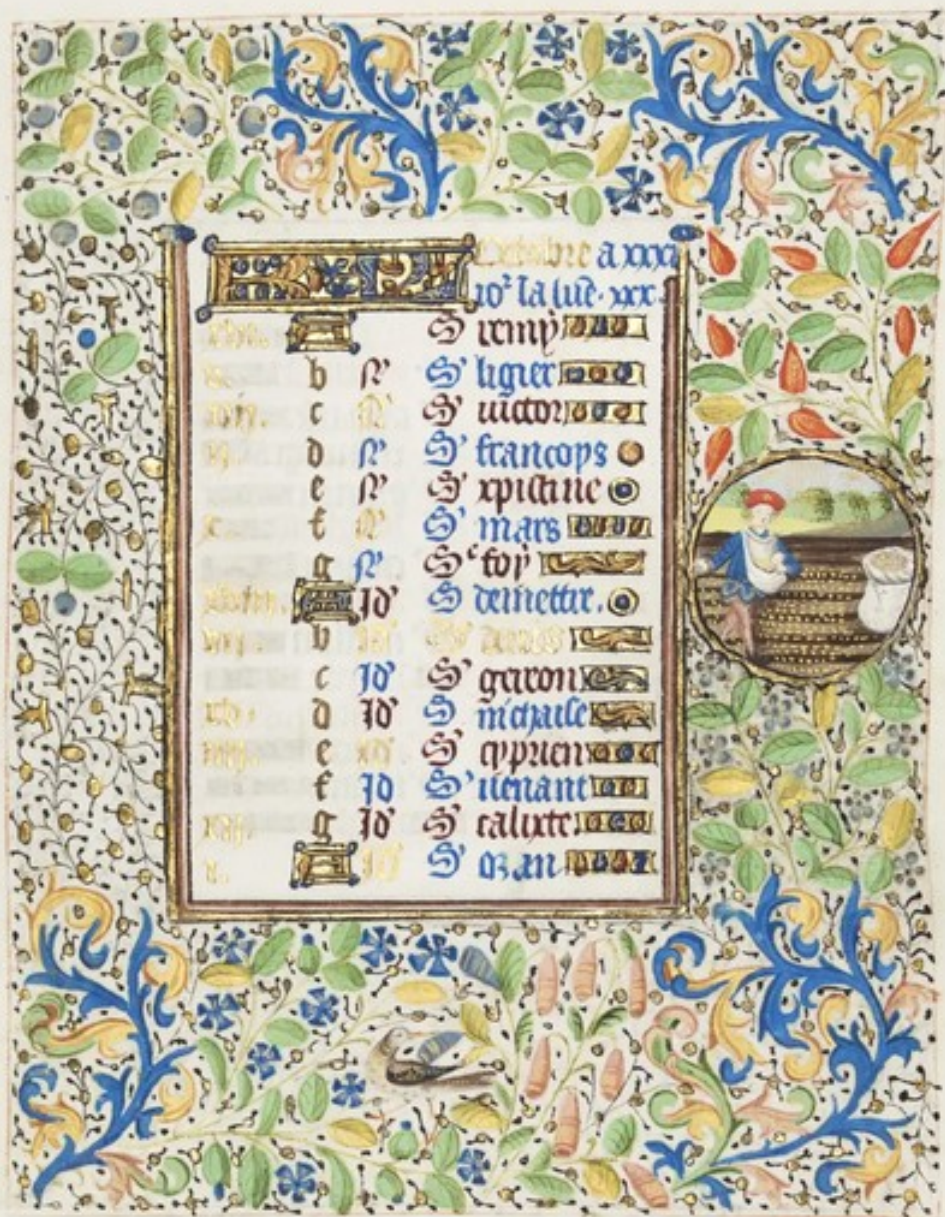 Octobre a xxxi
io2 la lue. xxx.
S' remy
b N' S' ligier
c N' S' victor
d N' S' francoys
e N' S' xpistine
c f N' S' mars
g N' Sc foy
Id' S' demettre.
b Id' S' denis
c Id' S' geron
xv. d Id' S' nichaise
e Id' S' cyprien
f Id S' venant
g Id' S' calixte
i. Id' S' oran